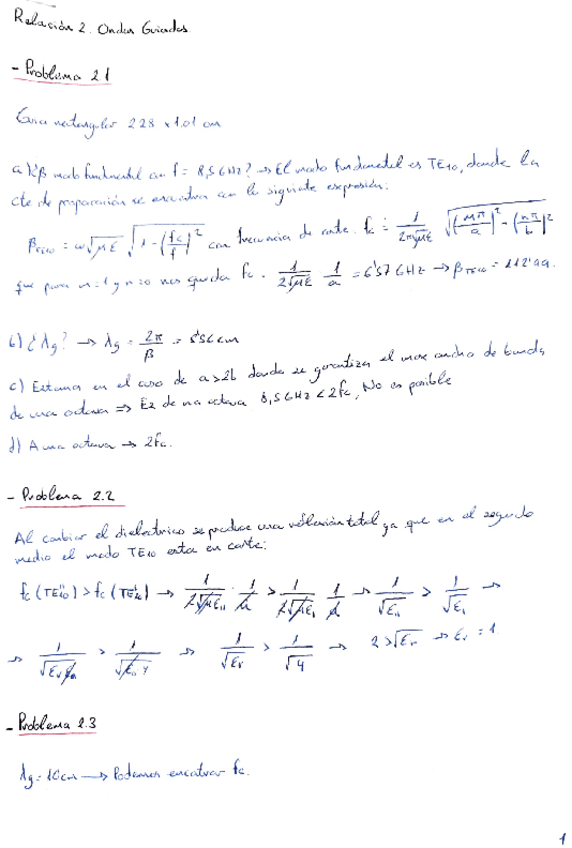 Relación 2. Ondas Guiadas
- Problema 2.1
Guía rectangular 2.28 x 1.01 cm
a) ¿β modo fundamental con f = 8,5 GHz? → El modo fundamental es TE10, donde la
cte de propagación se encuentra con la siguiente expresión:
β_TE10 = ω√με √(1-(fc/f)²) con frecuencia de corte. fc = 1/(2π√με) √((mπ/a)² - (nπ/b)²
que para m=1 y n=0 nos queda fc = 1/(2√με) 1/a = 6'57 GHz → β_TE10 = 112'99.
b) ¿λg? → λg = 2π/β = 5'56 cm
c) Estamos en el caso de a>2b donde se garantiza el max ancho de banda
de una octava ⇒ Ez de na octava 8,5 GHz < 2fc, No es posible
d) A una octava → 2fc.
- Problema 2.2
Al cambiar el dieléctrico se produce una reflexión total ya que en el segundo
medio el modo TE10 esta en corte:
fc (TE10) > fc (TE10) → 1/(2√με11) · 1/a > 1/(2√με1) 1/a → 1/√ε11 > 1/√ε1 →
→ 1/√(εr ε0) > 1/√(ε0 4) → 1/√εr > 1/√4 → 2 > √εr → εr = 1
- Problema 2.3
λg = 10cm → Podemos encontrar fc.
1